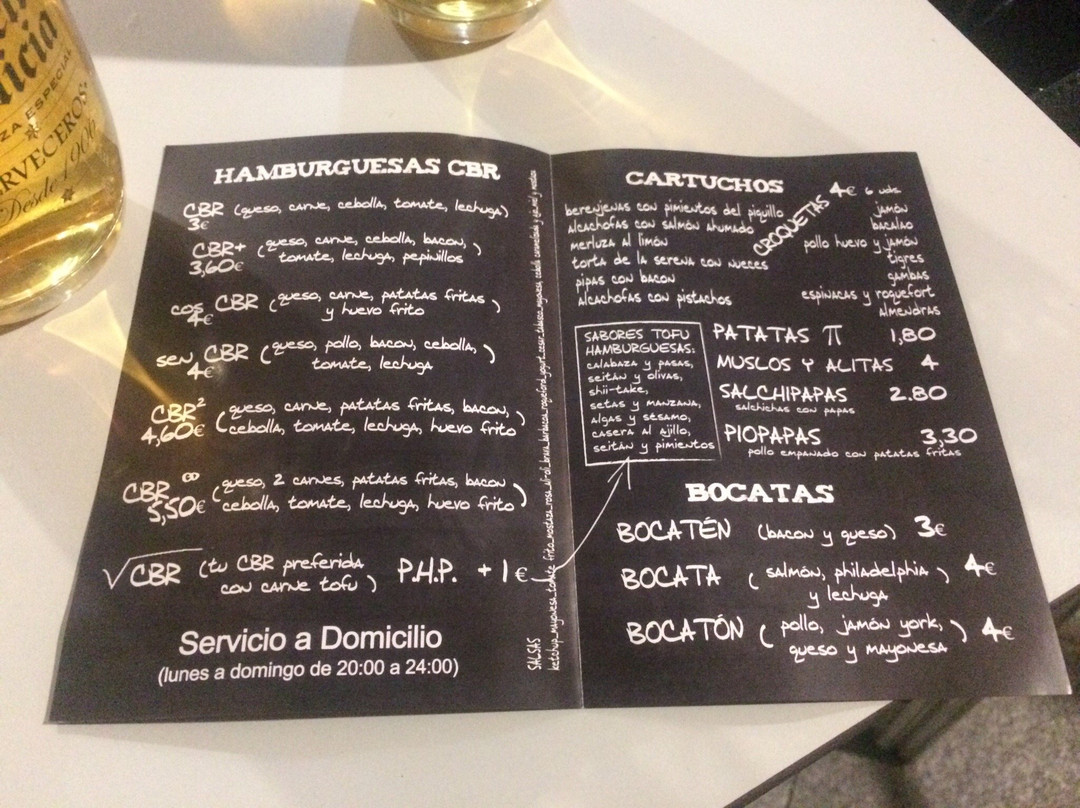 icia
ZA ESPECIAL
RVECEROS
Desde 1906
HAMBURGUESAS CBR
CBR (queso, carne, cebolla, tomate, lechuga)
3€
CBR+ (queso, carne, cebolla, bacon,
3,60€ tomate, lechuga, pepinillos)
cos CBR (queso, carne, patatas fritas
4€ y huevo frito)
sen CBR (queso, pollo, bacon, cebolla,
4€ tomate, lechuga)
CBR² (queso, carne, patatas fritas, bacon,
4,60€ cebolla, tomate, lechuga, huevo frito)
CBR∞ (queso, 2 carnes, patatas fritas, bacon
5,50€ cebolla, tomate, lechuga, huevo frito)
√CBR (tu CBR preferida
con carne tofu) P.H.P. + 1€
Servicio a Domicilio
(lunes a domingo de 20:00 a 24:00)
SALSAS
ketchup_mayonesa_tomate frito_mostaza_rosa_alioli_brava_barbacoa_roquefort_yogurt_cesar_tabasco_mayonesa, cebolla caramelizada y
CARTUCHOS
berenjenas con pimientos del piquillo
alcachofas con salmón ahumado
merluza al limón
torta de la serena con nueces
pipas con bacon
alcachofas con pistachos
CROQUETAS 4€ 6 uds.
jamón
bacalao
pollo huevo y jamón
tigres
gambas
espinacas y roquefort
almendras
SABORES TOFU
HAMBURGUESAS:
calabaza y pasas,
seitán y olivas,
shii-take,
setas y manzana,
algas y sésamo,
casera al ajillo,
seitán y pimientos
PATATAS π 1,80
MUSLOS Y ALITAS 4
SALCHIPAPAS 2.80
salchichas con papas
PIOPAPAS 3,30
pollo empanado con patatas fritas
BOCATAS
BOCATÉN (bacon y queso) 3€
BOCATA (salmón, philadelphia
y lechuga) 4€
BOCATÓN (pollo, jamón york,
queso y mayonesa) 4€